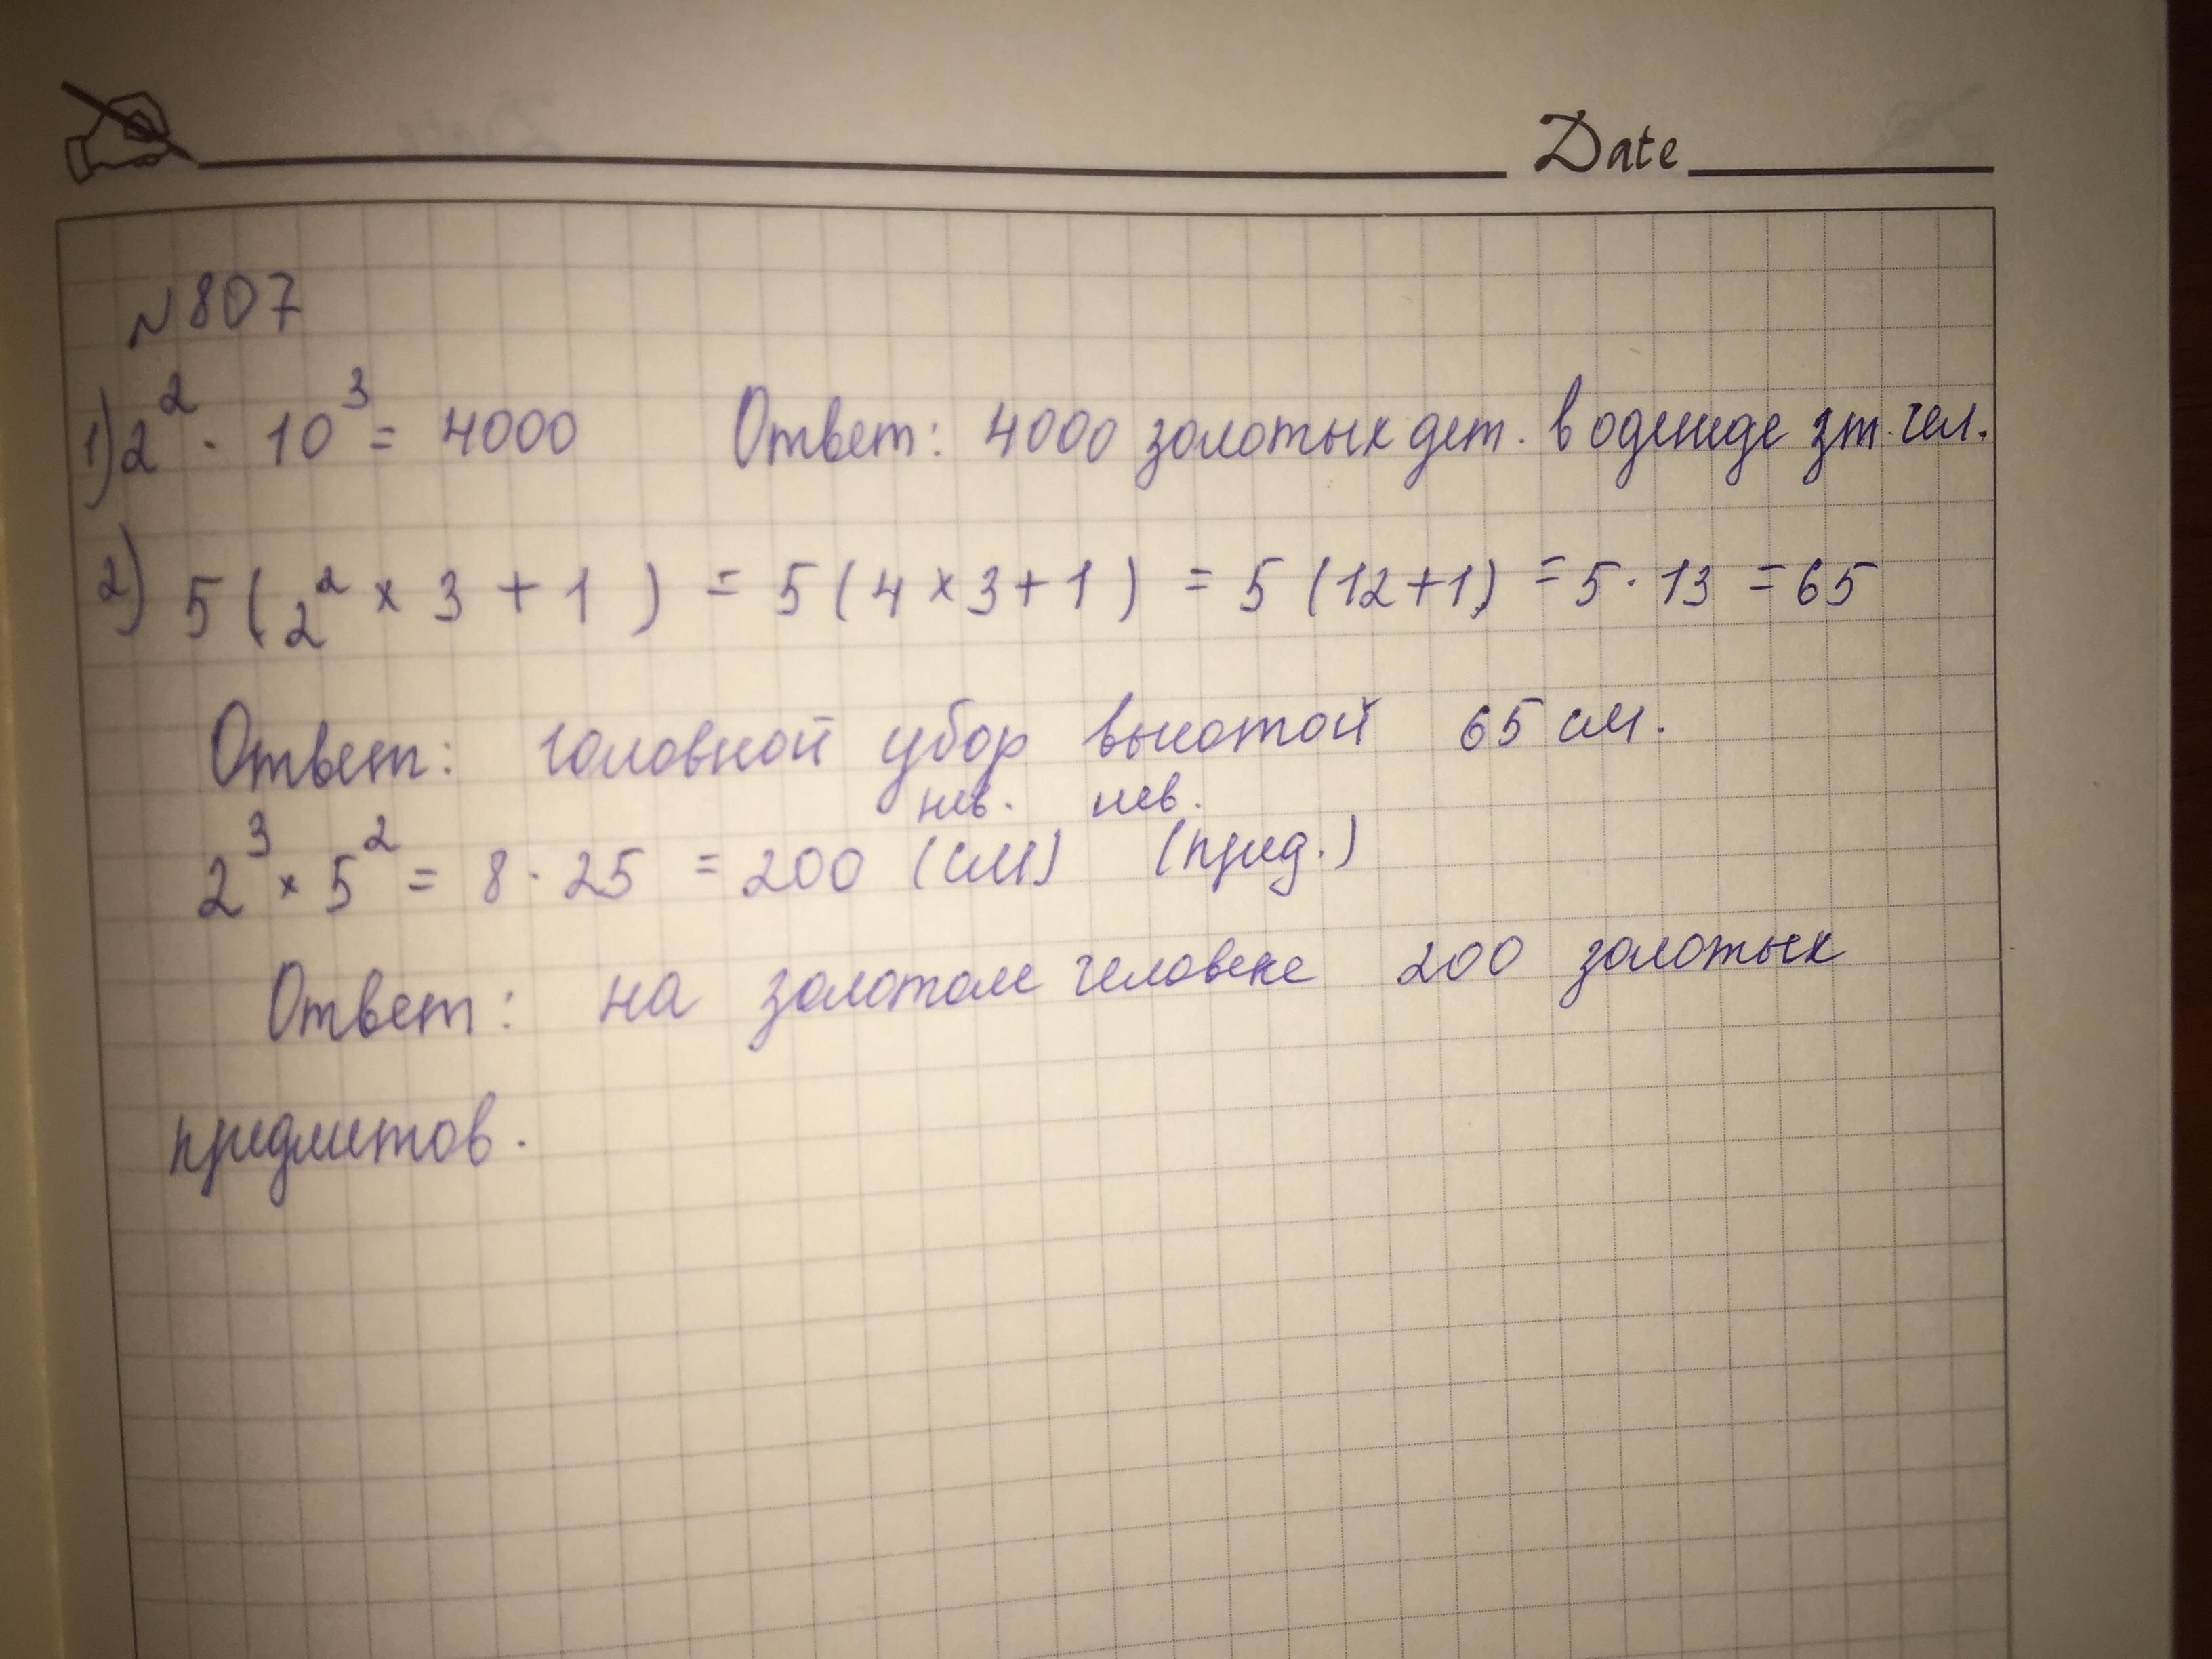 Date
N807
1) 2² · 10³ = 4000 Ответ: 4000 золотых дет. в одежде зт. чел.
2) 5(2² × 3 + 1) = 5(4 × 3 + 1) = 5(12+1) = 5 · 13 = 65
Ответ: головной убор высотой 65 см.
2³ × 5² = 8 · 25 = 200 (см) (пред.)
Ответ: на золотом человеке 200 золотых
предметов.